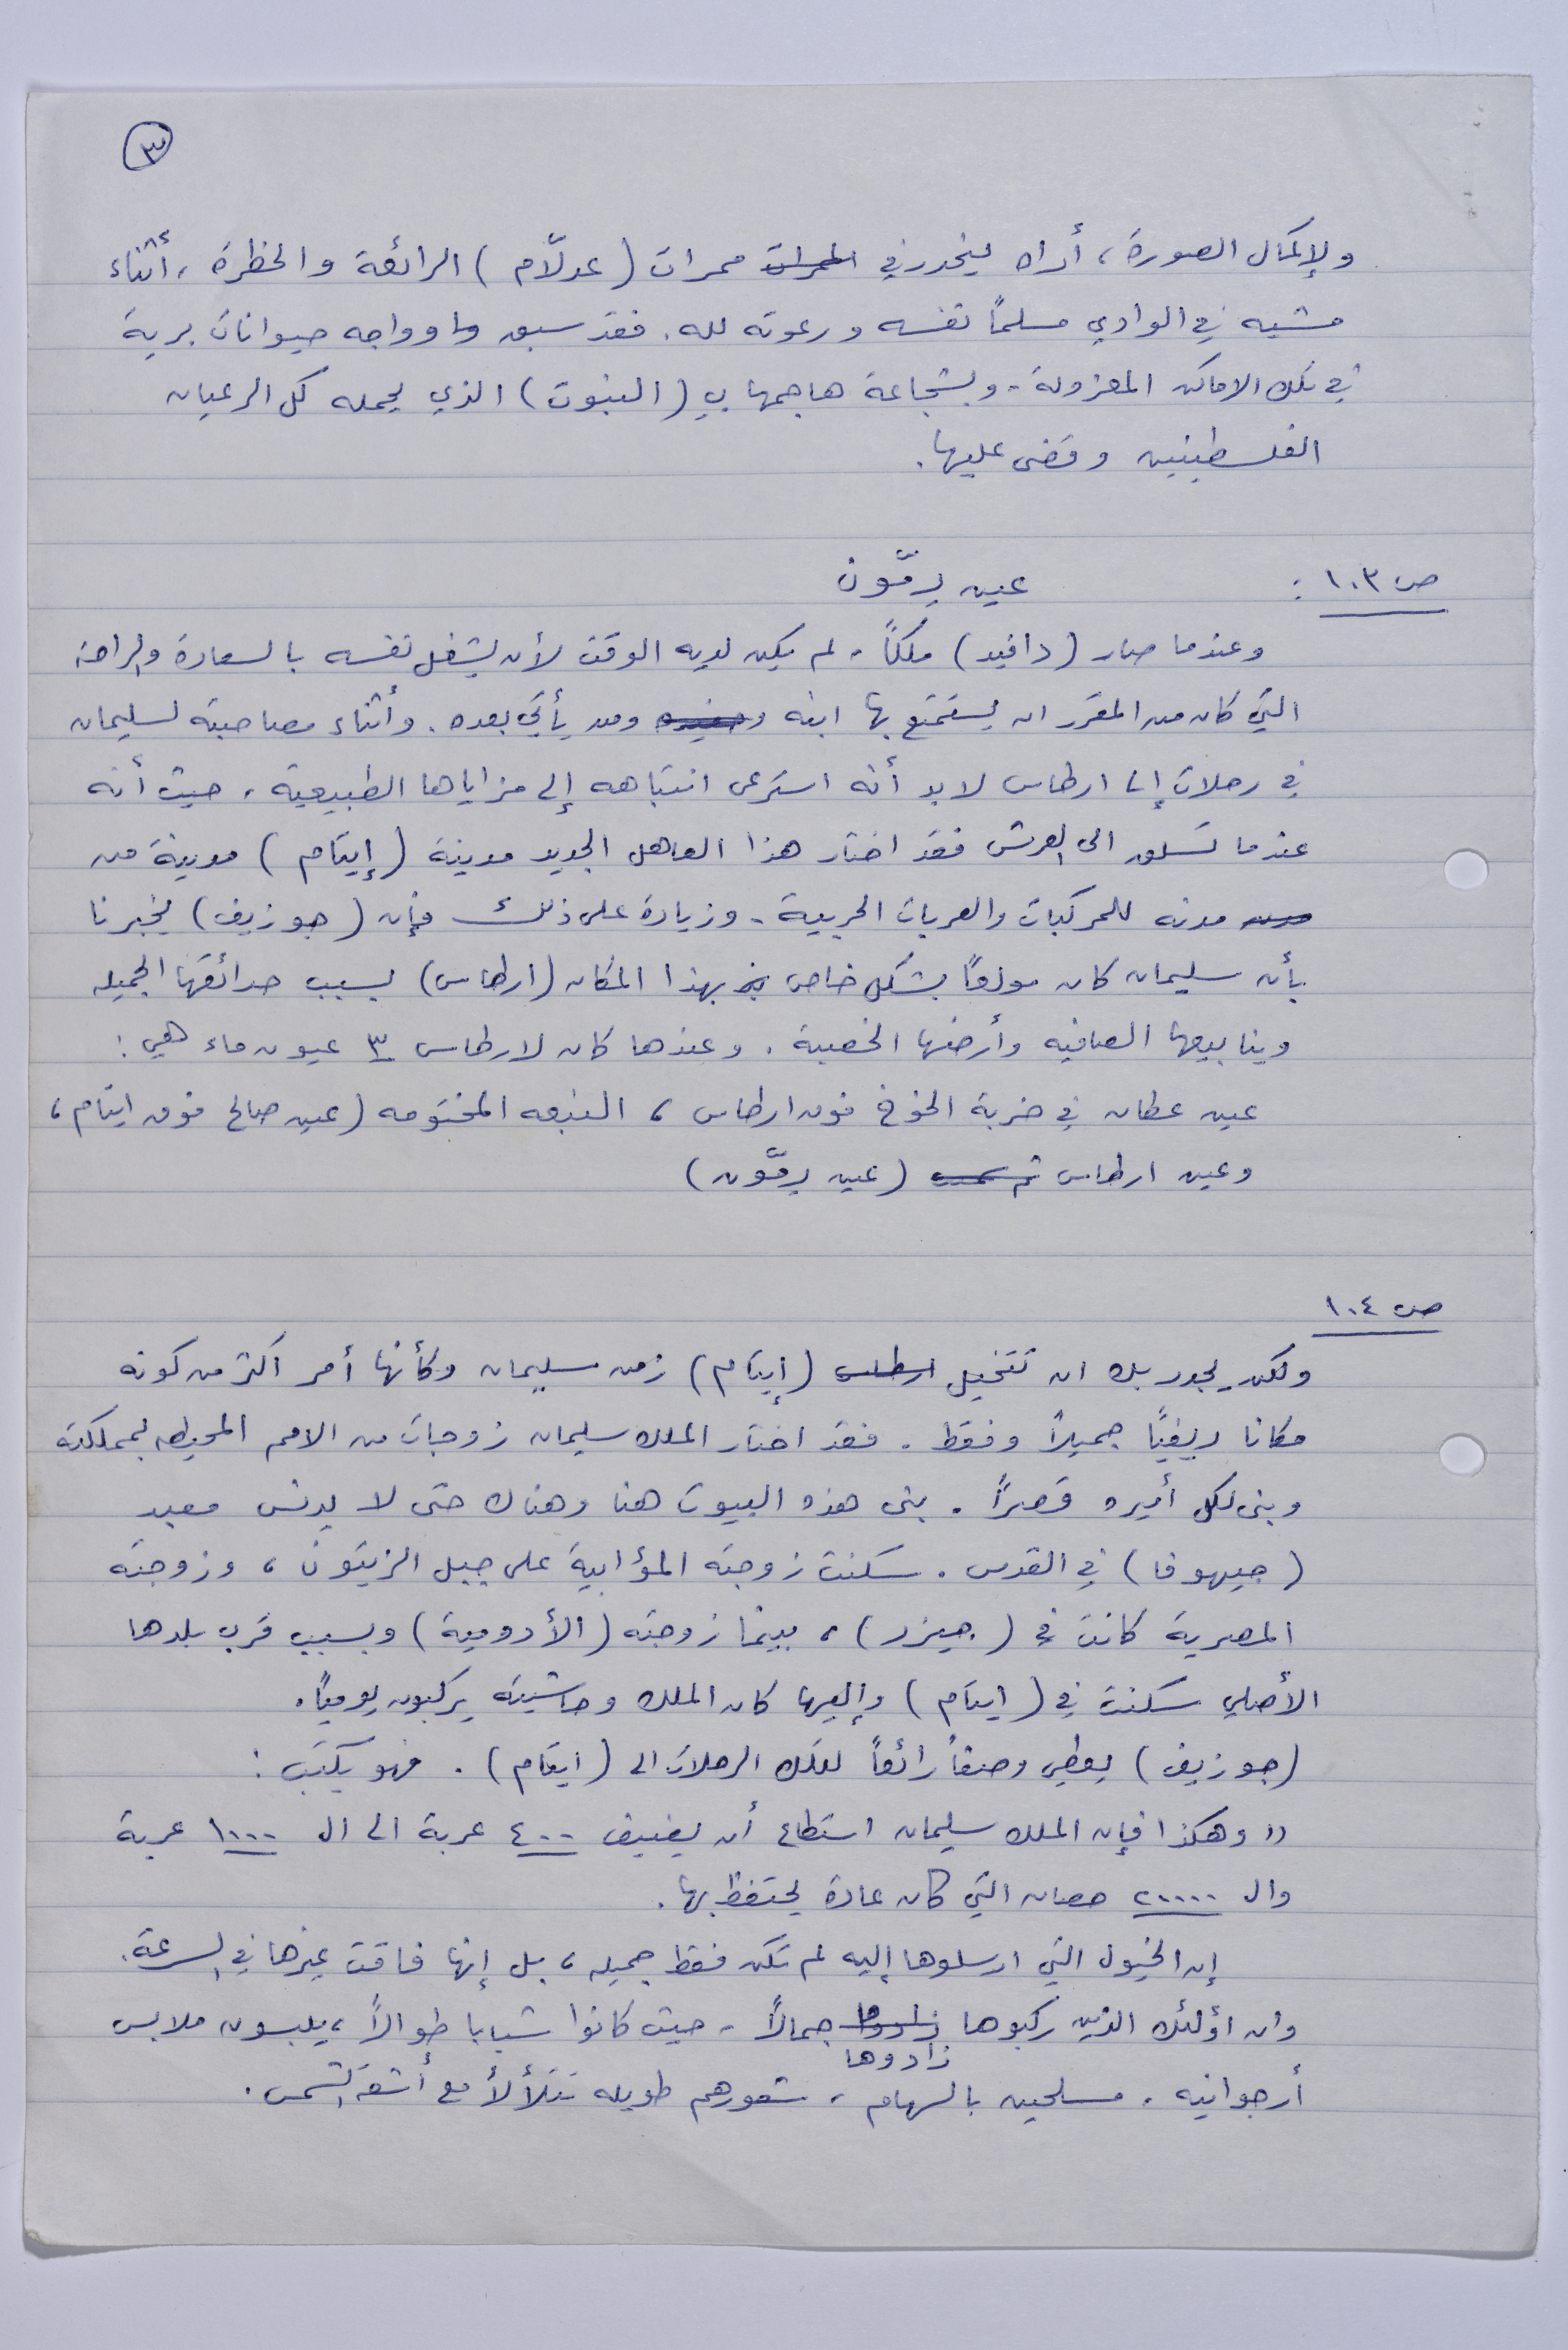 ٣
ولإكمال الصورة، أراه ينحدر في الممرات ممرات (عدلّام) الرائعة والخطرة، أثناء
مشيه في الوادي مسلماً نفسه ودعوته لله. فقد سبق وا وواجه حيوانات برية
في تلك الاماكن المعزولة - وبشجاعة هاجمها بـ (النبوت) الذي يحمله كل الرعيان
الفلسطينيين وقضى عليها.
ص ١٠٣ : عين رمّون
وعندما صار (دافيد) ملكاً - لم يكن لديه الوقت لأن يشغل نفسه بالسعادة والراحة
التي كان من المقرر ان يستمتع بها ابنه وحفيده ومن يأتي بعده. وأثناء مصاحبته لسليمان
في رحلات إلى ارطاس لا بد أنه استرعى انتباهه إلى مزاياها الطبيعية، حيث أنه
عندما تسلق الى العرش فقد اختار هذا العاهل الجديد مدينة (إيتام) مدينة من
مدن مدنه للمركبات والعربات الحربية - وزيادة على ذلك فإن (جوزيف) يخبرنا
بأن سليمان كان مولعاً بشكل خاص بهذا المكان (ارطاس) بسبب حدائقها الجميله
وينابيعها الصافيه وأرضها الخصبة. وعندها كان لارطاس ٣ عيون ماء هي:
عين عطان في خربة الخوخ فوق ارطاس، النبعه المختومه (عين صالح فوق ايتام،
وعين ارطاس (عين رمّون)
ص ١٠٤
ولكن يجدر بك ان تتخيل ارطاس (إيتام) زمن سليمان وكأنها أمر اكثر من كونه
مكانا ريفيّاً جميلاً وفقط. فقد اختار الملك سليمان زوجات من الامم المحيطه بمملكته
وبنى لكل أميره قصراً. بنى هذه البيوت هنا وهناك حتى لا يدنس معبد
(جيهوفا) في القدس. سكنت زوجته المؤابية على جبل الزيتون، وزوجته
المصرية كانت في (جيزر)، بينما زوجته (الأدومية) وبسبب قرب بلدها
الأصلي سكنت في (ايتام) وإليها كان الملك وحاشيته يركبون يومياً.
(جوزيف) يعطي وصفاً رائعاً لتلك الرحلات الى (ايتام). فهو يكتب:
"وهكذا فإن الملك سليمان استطاع أن يضيف ٤٠٠ عربة الى ال ١٠٠٠ عربة
وال ٢٠٠٠٠ حصان التي كان عادة يحتفظ بها.
إن الخيول التي ارسلوها إليه لم تكن فقط جميله، بل إنها فاقت غيرها في السرعة.
وان اؤلئك الذين ركبوها زادوها جمالاً - حيث كانوا شبابا طوالاً، يلبسون ملابس
زادوها
أرجوانيه. مسلحين بالسهام، شعورهم طويله تتلألأ مع أشعة الشمس.